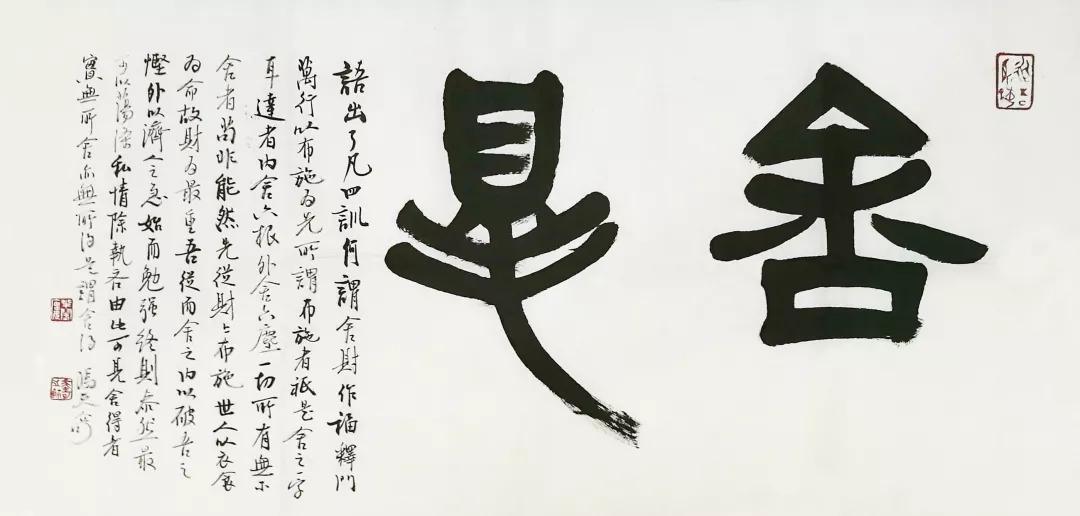 舍得
語出了凡四訓何謂舍財作福釋門
萬行以布施為先所謂布施者祇是舍之一字
耳達者內舍六根外舍六塵一切所有無不
舍者苟非能然先從財上布施世人以衣食
為命故財為最重吾從而舍之內以破吾之
慳外以濟人之急始而勉强終則泰然最
可以蕩滌私情除執吝由此可見舍得者
實無所舍亦無所得是謂舍得 馮天